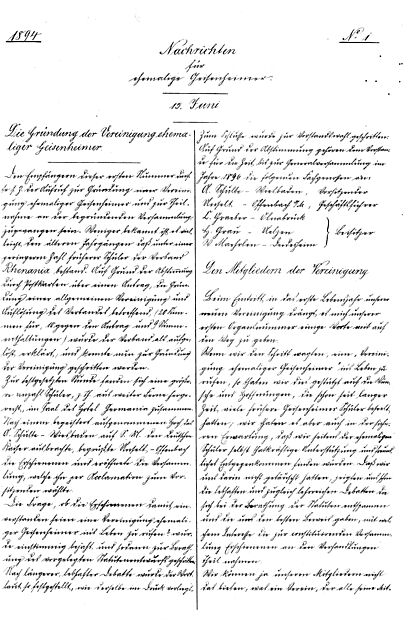 1894
No. 1
Nachrichten
für
ehemalige Geisenheimer.
15. Juni
Die Gründung der Vereinigung ehema-
liger Geisenheimer.
Den Empfängern dieser ersten Nummer
der Aufruf zur Gründung einer Verei-
nigung ehemaliger Geisenheimer und zur Teil-
nahme an der begründenden Versammlung
zugegangen sein. Weniger bekannt ist es
den älteren Jahrgängen, daß unter einer
geringeren Zahl früherer Schüler der Verband
Rhenania bestand. Auf Grund der Abstimmung
durch Postkarten über einen Antrag, die Grün-
dung einer allgemeinen Vereinigung und
Auflösung des Verbandes betreffend,
gegen den Antrag und
enthaltungen) wurde der Verband als aufge-
löst erklärt, und konnte nun zur Gründung
der Vereinigung geschritten werden.
Zur festgesetzten Stunde fanden sich eine größe-
re Anzahl Schüler,
im Saal des Hotel Germania zusammen.
Nach einem begeistert aufgenommenen Hoch des
A. Schulte - Wiesbaden auf S. M. den Deutschen
Kaiser
die Erschienenen und eröffnete die Versamm-
lung, welche ihn per Acclamation zum Vor-
sitzenden wählte.
Die Frage, ob die Erschienenen damit ein-
verstanden seien eine Vereinigung ehemali-
ger Geisenheimer ins Leben zu rufen, wur-
de einstimmig bejaht, und sodann zur Bera-
tung des vorgelegten Statutenentwurfs geschritten.
Nach längerer, lebhafter Debatte wurde der Wort-
laut so festgestellt, wie derselbe im Druck vorliegt.
Zum Schlusse wurde zur Vorstandswahl geschritten.
Auf Grund der Abstimmung gehören dem Vorstan-
de für die Zeit bis zur Generalversammlung im
Jahre 1896 die folgenden Fachgenossen an:
A. Schulte - Wiesbaden, Vorsitzender
Geschäftsführer
Osnabrück
H. Grau - Uelzen
Beisitzer
Den Mitgliedern der Vereinigung
Beim Eintritt in das erste Lebensjahr unserer
neuen Vereinigung drängt es mich unserer
ersten Organnummer einige Worte mit auf
den Weg zu geben.
Wenn wir den Schritt wagten, eine Vereini-
gung ehemaliger Geisenheimer ins Leben zu
rufen, so haben wir dies gestützt auf die Wün-
sche und Hoffnungen, die schon seit langer
Zeit viele frühere Geisenheimer Schüler beseelt
hatten; wir haben es aber auch in der siche-
ren Erwartung, daß wir seitens der ehemaligen
Schüler selbst thatkräftige Unterstützung und freund-
liches Entgegenkommen finden würden. Daß wir
uns darin nicht getäuscht hatten, zeigten uns schon
die lebhaften und zugleich lehrreichen Debatten die
sich bei der Beratung der Statuten entspannen
und die uns den besten Beweis gaben, mit wel-
chem Interesse die zur constituierenden Versamm-
lung Erschienenen an den Verhandlungen
Theil nahmen.
Wir können ja unseren Mitgliedern nicht
das bieten, was ein Verein, der alle seine Mit-